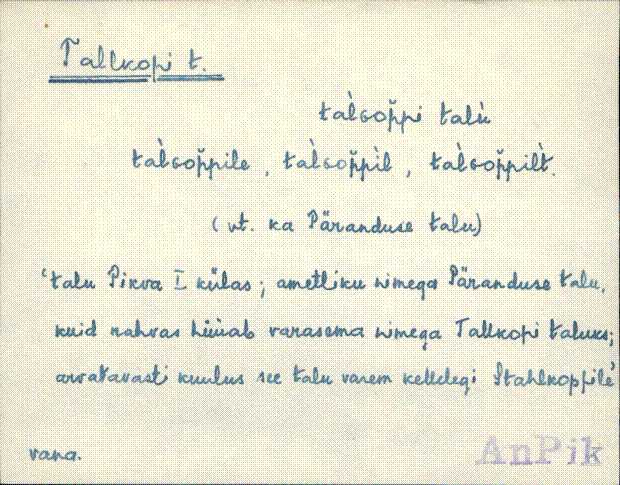 Tallkopi t.
tàl̀GOp̆pi talù
tàl̀GOp̆pile, tàl̀GOp̆pìl, tàl̀GOp̆pilt̀.
(vt. ka Päranduse talu)
'talu Pikva I külas; ametliku nimega Päranduse talu,
kuid rahvas hüüab varasema nimega Tallkopi taluks;
arvatavasti kuulus see talu varem kellelegi Stahlkoppile'
vana.
AnPik